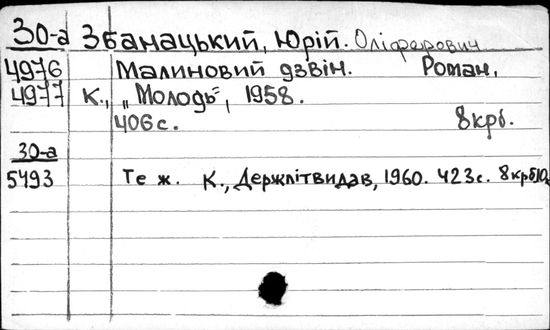 30-а Збанацький, Юрій. Оліферович
4976 Малиновий дзвін. Роман.
4977 К., „Молодь", 1958.
406 с. 8 крб.
30-а
5493 Те ж. К., Держлітвидав, 1960. 423 с. 8 крб 10